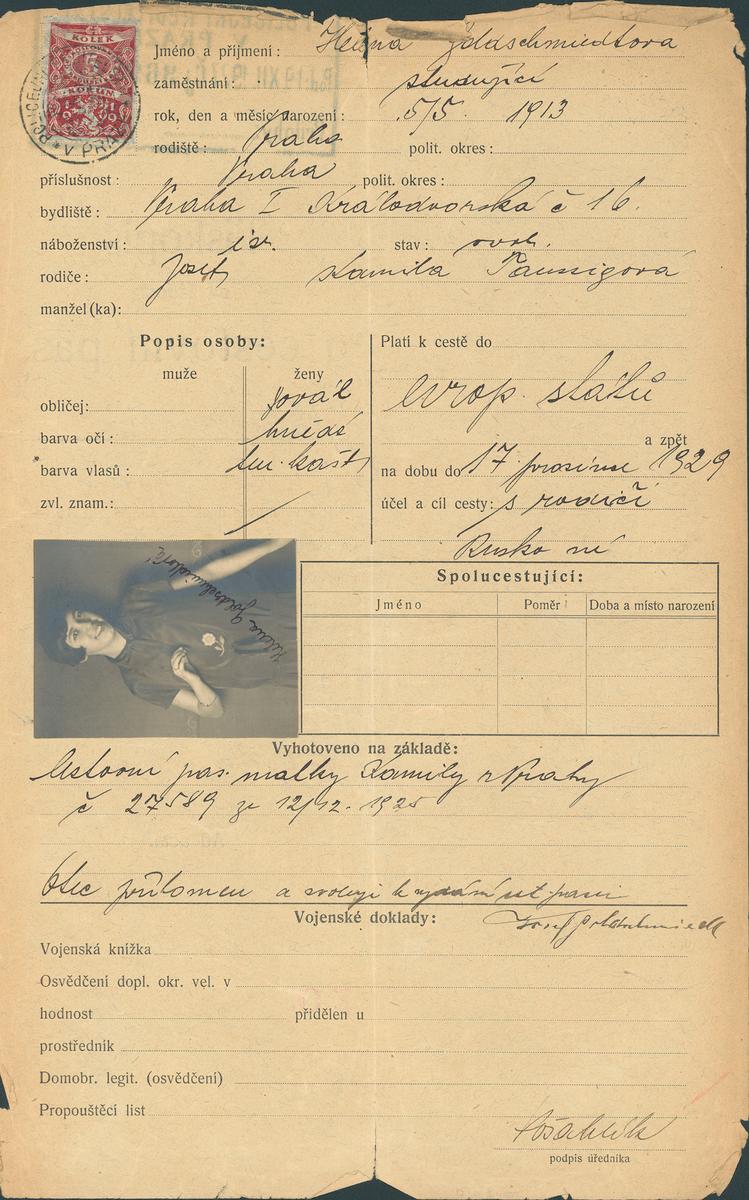 KOLEK
KORUN
V PRAZE
Jméno a příjmení: Helena Goldschmiedtová
zaměstnání: studující
rok, den a měsíc narození: 5/5 1913
rodiště: Praha polit. okres:
příslušnost: Praha polit. okres:
bydliště: Praha I Králodvorská č 16.
náboženství: isr. stav: svob.
rodiče: Josef Kamila Taussigová
manžel(ka):
Popis osoby:
muže ženy
obličej: ovál
barva očí: hnědé
barva vlasů: tm. kašt
zvl. znam.:
Platí k cestě do
evrop. států
a zpět
na dobu do 17 prosince 1929
účel a cíl cesty: s rodiči
Rusko ne
Helena Goldschmiedtová
Spolucestující:
Jméno Poměr Doba a místo narození
Vyhotoveno na základě:
Cestovní pas. matky Kamily z Prahy
č 27589 ze 12/12. 1925
Otec přítomen a svoluje k vydání pasu
Josef Goldschmiedt
Vojenské doklady:
Vojenská knížka
Osvědčení dopl. okr. vel. v
hodnost přidělen u
prostředník
Domobr. legit. (osvědčení)
Propouštěcí list
podpis úředníka